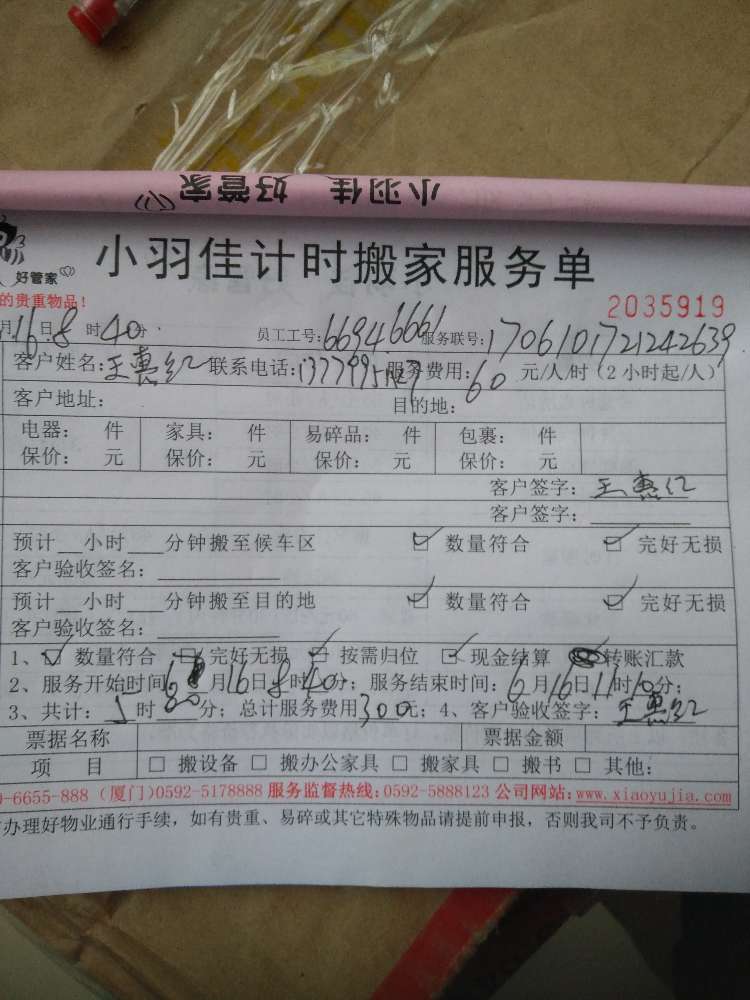 小羽佳 好管家
好管家
小羽佳计时搬家服务单
的贵重物品！
2035919
月16日8时40分 员工工号:66946661 服务联号:1706101721242639
客户姓名:王惠红 联系电话: 服务费用:60元/人/时（2小时起/人）
客户地址： 目的地：
电器： 件 家具： 件 易碎品： 件 包裹： 件
保价： 元 保价： 元 保价： 元 保价： 元
客户签字：王惠红
客户签字：
预计__小时___分钟搬至候车区 ☑ 数量符合 ☑ 完好无损
客户验收签名：
预计__小时___分钟搬至目的地 ☑ 数量符合 ☑ 完好无损
客户验收签名：
1、☑ 数量符合 ☑ 完好无损 ☑ 按需归位 ☑ 现金结算 转账汇款
2、服务开始时间6月16日8时40分；服务结束时间：6月16日11时10分；
3、共计：5时00分；总计服务费用300元；4、客户验收签字：王惠红
票据名称 票据金额
项 目 □ 搬设备 □ 搬办公家具 □ 搬家具 □ 搬书 □ 其他：
0-6655-888（厦门）0592-5178888 服务监督热线：0592-5888123 公司网站：www.xiaoyujia.com
办理好物业通行手续，如有贵重、易碎或其它特殊物品请提前申报，否则我司不予负责。